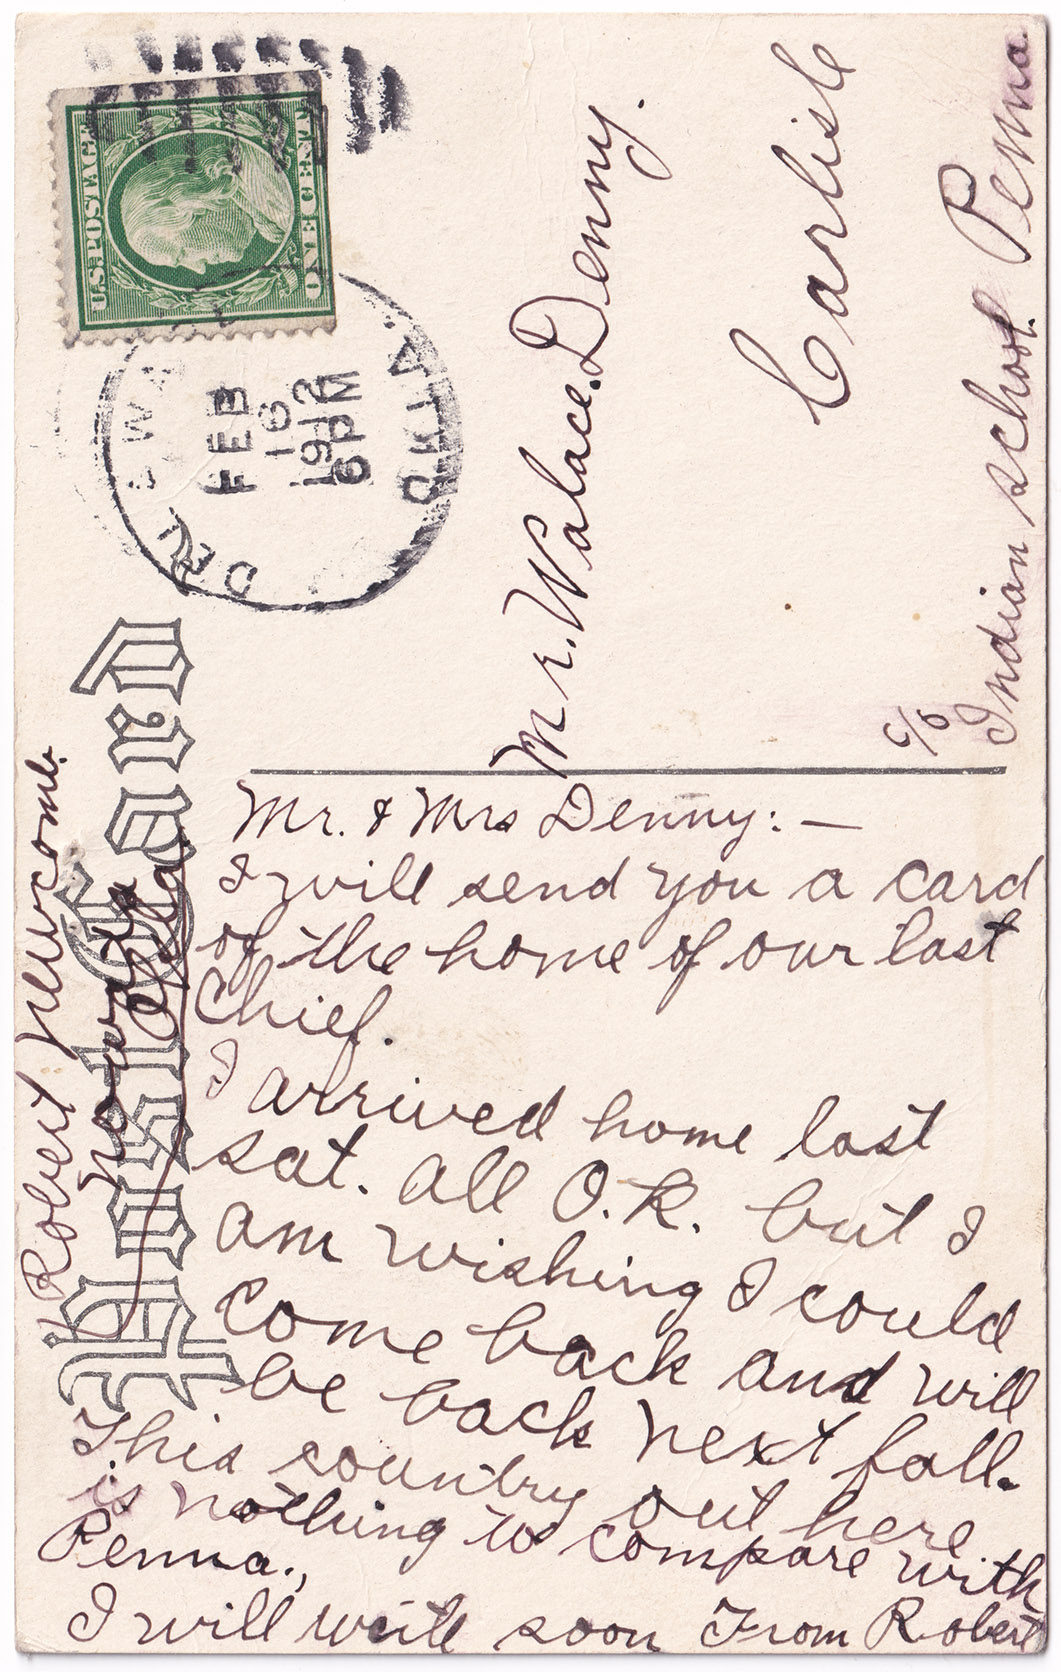 U.S. POSTAGE
ONE CENT
FEB
16
1912
6 PM
OKLA.
Post Card
Mr. Walace. Denny.
Carlisle
Penna.
c/o Indian school.
Mr. & Mrs Denny: —
I will send you a card
of the home of our last
Chief.
I arrived home last
sat. all O.K. but I
am wishing I could
come back and will
be back next fall.
This country out here
is nothing to compare with
Penna.,
I will write soon From Robert
Robert Newcomb.
Nowata
Okla.